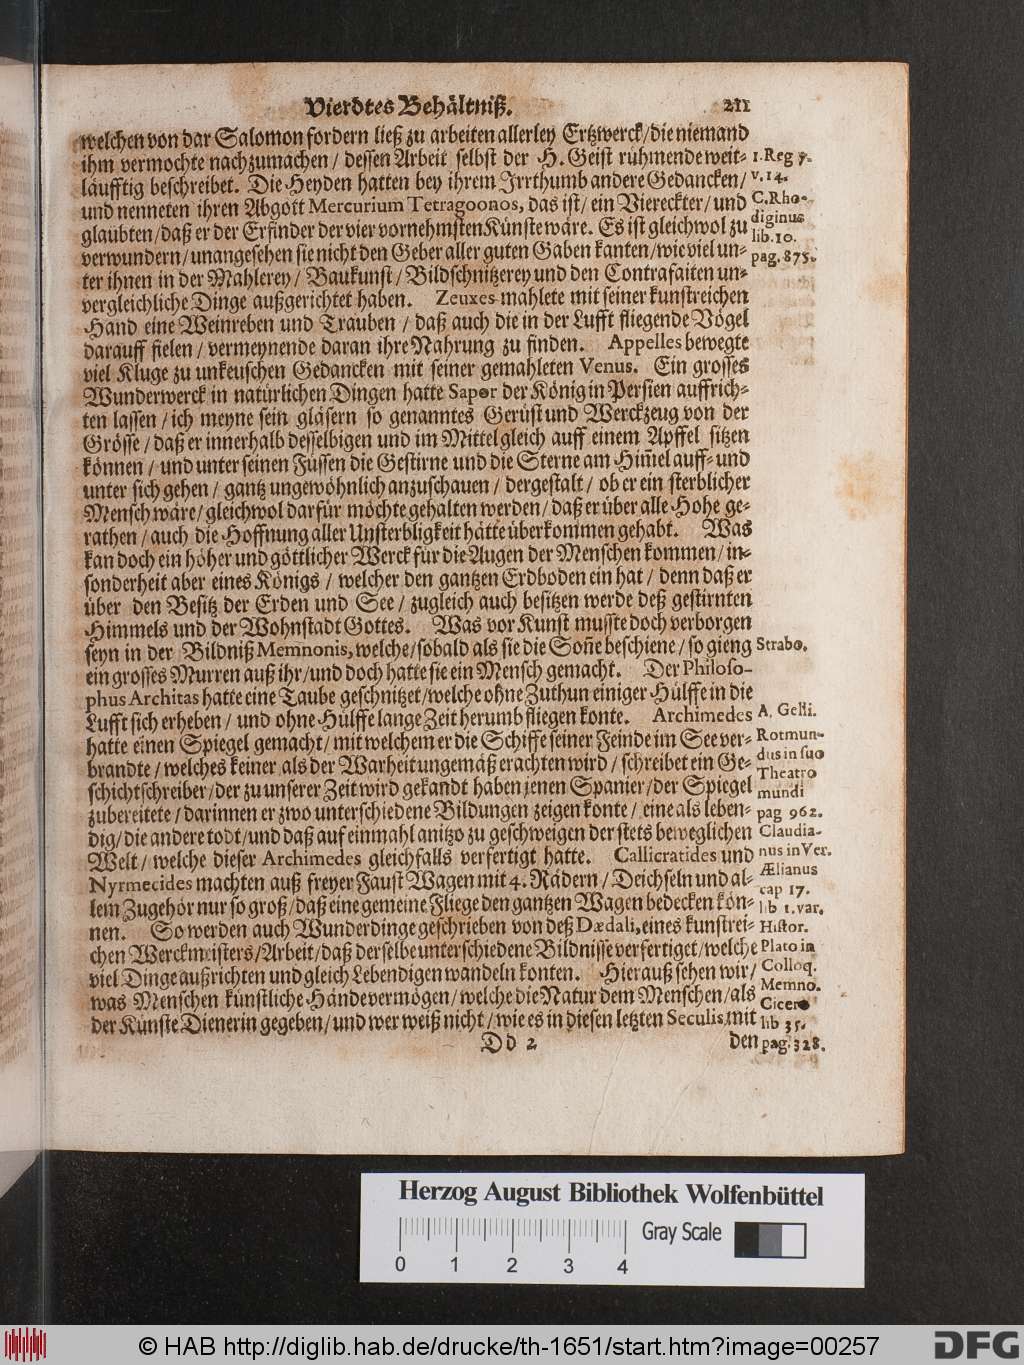 Vierdtes Behältniß. 211
welchen von dar Salomon fordern ließ zu arbeiten allerley Ertzwerck / die niemand
ihm vermochte nachzumachen / dessen Arbeit selbst der H. Geist rühmende weit-
läufftig beschreibet. Die Heyden hatten bey ihrem Irrthumb andere Gedancken /
und nenneten ihren Abgott Mercurium Tetragoonos, das ist / ein Viereckter / und
glaubten / daß er der Erfinder der vier vornehmsten Künste wäre. Es ist gleichwol zu
verwundern / unangesehen sie nicht den Geber aller guten Gaben kanten / wie viel un-
ter ihnen in der Mahlerey / Baukunst / Bildschnitzerey und den Contrafaiten un-
vergleichliche Dinge außgerichtet haben. Zeuxes mahlete mit seiner kunstreichen
Hand eine Weinreben und Trauben / daß auch die in der Lufft fliegende Vögel
darauff fielen / vermeynende daran ihre Nahrung zu finden. Appelles bewegte
viel Kluge zu unkeuschen Gedancken mit seiner gemahleten Venus. Ein grosses
Wunderwerck in natürlichen Dingen hatte Sapor der König in Persien auffrich-
ten lassen / ich meyne sein gläsern so genanntes Gerüst und Werckzeug von der
Grösse / daß er innerhalb desselbigen und im Mittel gleich auff einem Apffel sitzen
können / und unter seinen Füssen die Gestirne und die Sterne am Him̃el auff- und
unter sich gehen / gantz ungewöhnlich anzuschauen / dergestalt / ob er ein sterblicher
Mensch wäre / gleichwol darfür möchte gehalten werden / daß er über alle Hohe ge-
rathen / auch die Hoffnung aller Unsterbligkeit hätte überkommen gehabt. Was
kan doch ein höher und göttlicher Werck für die Augen der Menschen kommen / in-
sonderheit aber eines Königs / welcher den gantzen Erdboden ein hat / denn daß er
über den Besitz der Erden und See / zugleich auch besitzen werde deß gestirnten
Himmels und der Wohnstadt Gottes. Was vor Kunst musste doch verborgen
seyn in der Bildniß Memnonis, welche / sobald als sie die Soñe beschiene / so gieng
ein grosses Murren auß ihr / und doch hatte sie ein Mensch gemacht. Der Philoso-
phus Architas hatte eine Taube geschnitzet / welche ohne Zuthun einiger Hülffe in die
Lufft sich erheben / und ohne Hülffe lange Zeit herumb fliegen konte. Archimedes
hatte einen Spiegel gemacht / mit welchem er die Schiffe seiner Feinde im See ver-
brandte / welches keiner als der Warheit ungemäß erachten wird / schreibet ein Ge-
schichtschreiber / der zu unserer Zeit wird gekandt haben jenen Spanier / der Spiegel
zubereitete / darinnen er zwo unterschiedene Bildungen zeigen konte / eine als leben-
dig / die andere todt / und daß auf einmahl anitzo zu geschweigen der stets beweglichen
Welt / welche dieser Archimedes gleichfalls verfertigt hatte. Callicratides und
Nyrmecides machten auß freyer Faust Wagen mit 4. Rädern / Deichseln und al-
lem Zugehör nur so groß / daß eine gemeine Fliege den gantzen Wagen bedecken kön-
nen. So werden auch Wunderdinge geschrieben von deß Dædali, eines kunstrei-
chen Werckmeisters / Arbeit / daß derselbe unterschiedene Bildnisse verfertiget / welche
viel Dinge außrichten und gleich Lebendigen wandeln konten. Hierauß sehen wir /
was Menschen künstliche Hände vermögen / welche die Natur dem Menschen / als
der Künste Dienerin gegeben / und wer weiß nicht / wie es in diesen letzten Seculis, mit
Dd 2 den
1. Reg 7.
v. 14.
C. Rho-
diginus
lib. 10.
pag. 875.
Strabo.
A. Gelli.
Rotmun-
dus in suo
Theatro
mundi
pag 962.
Claudia-
nus in Ver.
Ælianus
cap 17.
lib 1. var.
Histor.
Plato in
Colloq.
Memno.
Cicero
lib 35.
pag. 328.
Herzog August Bibliothek Wolfenbüttel
Gray Scale
0 1 2 3 4
© HAB http://diglib.hab.de/drucke/th-1651/start.htm?image=00257
DFG